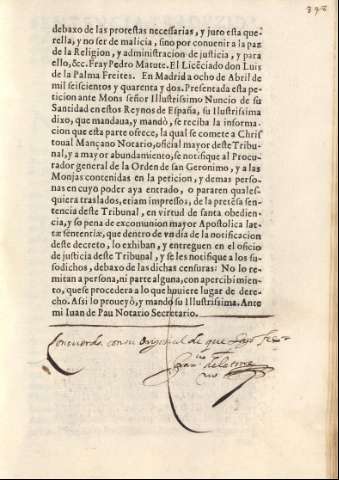 debaxo de las protestas necessarias, y juro esta que-
rella, y no ser de malicia, sino por conuenir a la paz
de la Religion, y administracion de justicia, y para
ello, &c. Fray Pedro Matute. El Licẽciado don Luis
de la Palma Freites. En Madrid a ocho de Abril de
mil seiscientos y quarenta y dos. Presentada esta pe-
ticion ante Mons señor Illustrissimo Nuncio de su
Santidad en estos Reynos de España, su Ilustrissima
dixo, que mandaua, y mandò, se reciba la informa-
cion que esta parte ofrece, la qual se comete a Chris
toual Mançano Notario, oficial mayor deste Tribu-
nal, y a mayor abundamiento, se notifique al Procu-
rador general de la Orden de san Geronimo, y a las
Monjas contenidas en la peticion, y demas perso-
nas en cuyo poder aya entrado, o pararen quales-
quiera traslados, etiam impressos, de la pretẽsa sen-
tencia deste Tribunal, en virtud de santa obedien-
cia, y so pena de excomunion mayor Apostolica lat-
tæ sententiæ, que dentro de vn dia de la notificacion
deste decreto, lo exhiban, y entreguen en el oficio
de justicia deste Tribunal, y se les notifique a los su-
sodichos, debaxo de las dichas censuras: No lo re-
mitan a persona, ni parte alguna, con apercibimien-
to, que se procedera a lo que huuiere lugar de dere-
cho. Assi lo proueyò, y mandò su Illustrissima. Ante
mi Iuan de Pau Notario Secretario.
Concuerda con su Original de que